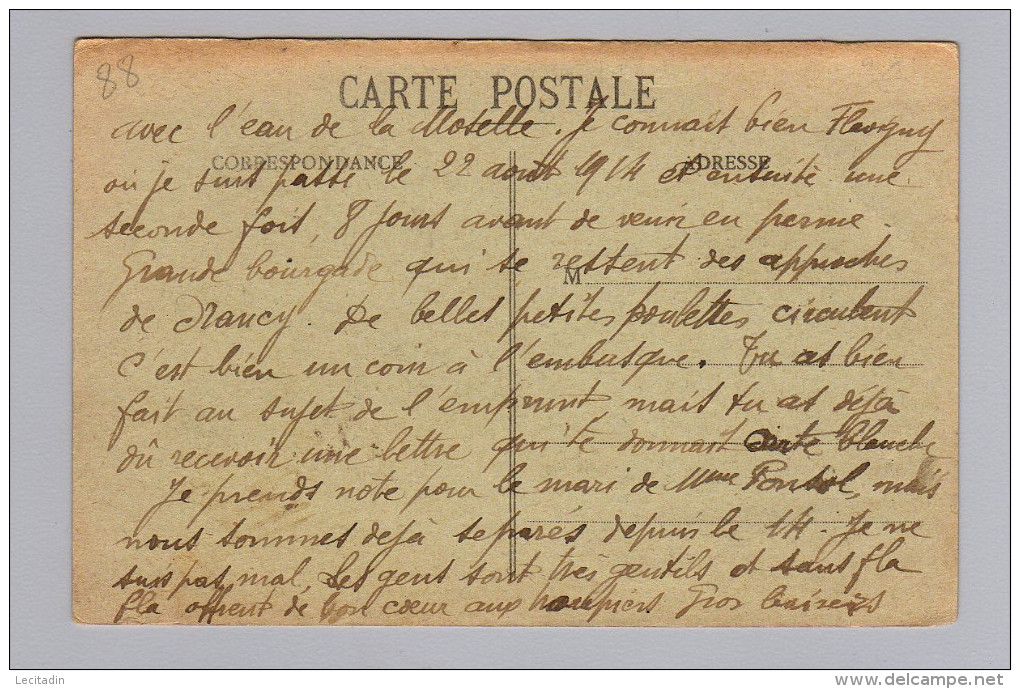 88
CARTE POSTALE
avec l'eau de la Moselle. Je connait bien Flavigny
CORRESPONDANCE
ADRESSE
où je suis passé le 22 août 1914 et ensuite une
seconde fois, 8 jours avant de venir en perme.
Grande bourgade qui se ressent des approches
M
de Nancy. De belles petites poulettes circulent
C'est bien un coin à l'embusque. Tu as bien
fait au sujet de l'emprunt, mais tu as déjà
dû recevoir une lettre qui te donnait carte blanche
Je prends note pour le mari de Mme Ponsol, mais
nous sommes dejà separés depuis le 14. Je ne
suis pas mal, Les gens sont très gentils et sans fla
fla offrent de bon cœur aux Gros baisers
Lecitadin
delcampe.net